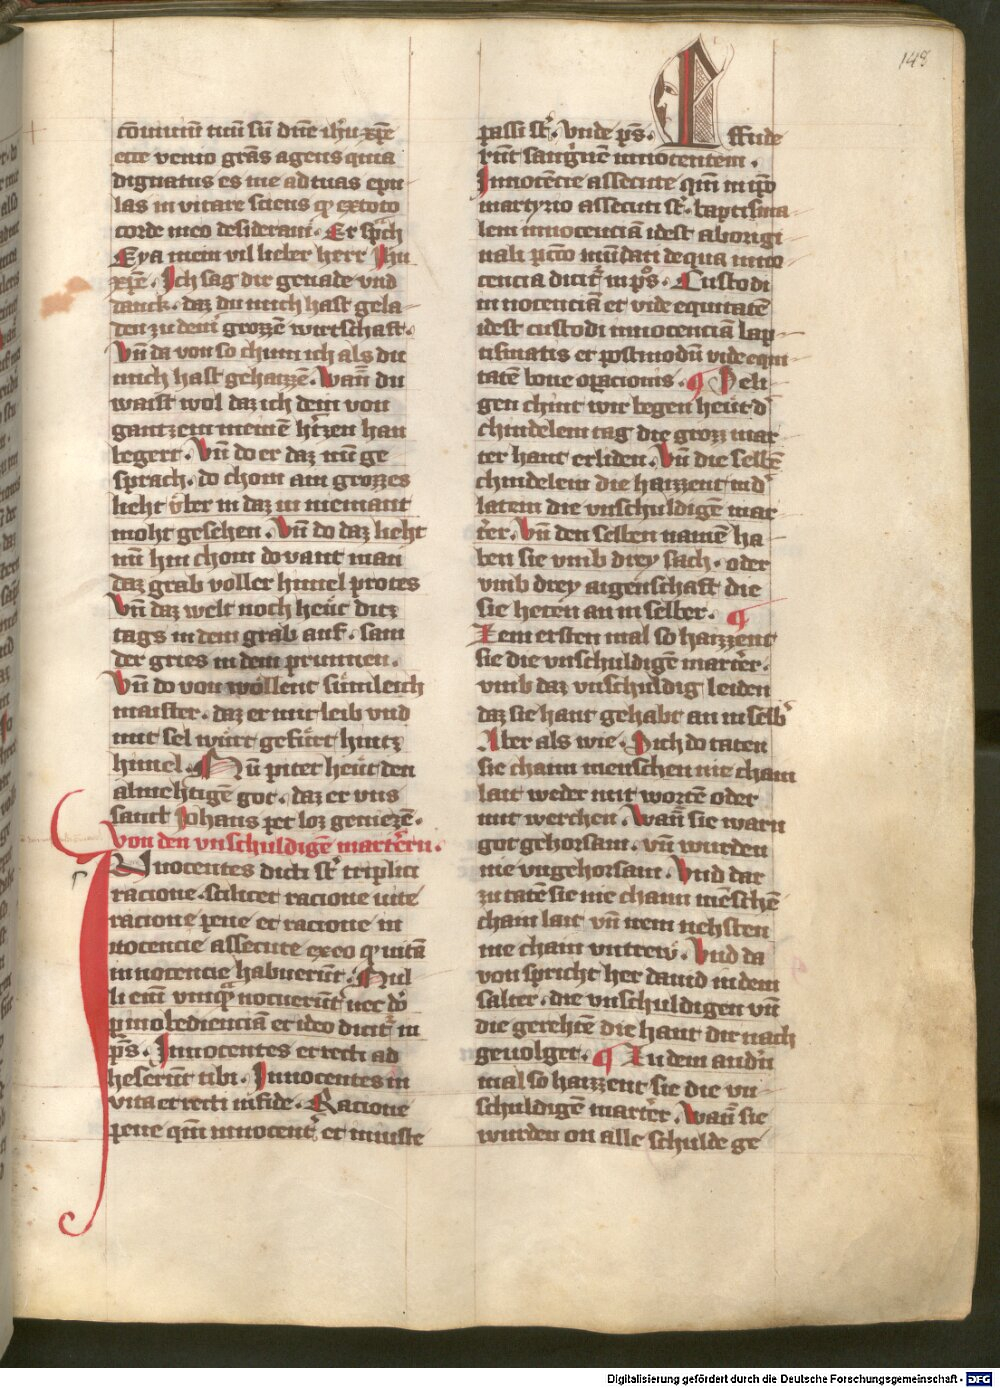 148
conuiuiū tuū sū dn̄e ih̄u xp̄e
ecce venio grās agens quia
dignatus es me ad tuas epu
las in vitare sciens qꝫ ex toto
corde meo desideraui. Er spͣch
Eya mein vil lieber herr Jhū
xp̄e. Ich sag dir genade vnd
danck. daz du mich hast gela
den zu deiner grozzē wirtschaft.
Vn̄ da von so chum ich als du
mich hast gehaizzē. Wan̄ du
waist wol daz ich dein von
gantzem meinē hr̄zen han
begert. Vn̄ do er daz nu ge
sprach. do chom ain grozzes
lieht v̈ber in daz in niemant
moht gesehen. Vn̄ do daz lieht
nū hin chom do vant man
daz grab voller himel protes
Vn̄ daz welt noch heüt ditz
tags in dem grab auf. sam
der gries in dem prunnen.
Vn̄ do von wöllent sümleich
maister. daz er mit leib vnd
mit sel würt gefürt hintz
himel. Nū piter heüt den
almehtigē got. daz er vns
sant Johans pet loz geniezē.
von den vnschuldigē martr̄ern.
INnocentes dicti st̄ triplici
racione. scilicet racione uite
racione pene et racione in
nocencie assecute ex eo qꝫ uitā
innocencie habuerūt. Nul
li eni vnquā nocuerūt nec dō
p inobedienciā et ideo dicit̄ in
ps̄. Innocentes et recti ad
heserūt tibi. Innocentes in
vita et recti in fide. Racione
pene qm̄ innocent̄ et iniuste
passi st̄. Vnde ps̄. Effude
rūt sanguinē innocentem.
Innocēcie assecute qm̄ in ip̄o
martyrio assecuti st̄. baptisma
lem innocenciā idest ab origi
nali pctō mūdati de qua inno
cencia dicit̄ in ps̄. Custodi
innocenciā et vide equitatē
idest custodi innocenciā bap
tismatis et postmodū vide equi
tatē bone oracionis. ¶ Seli
gen chint wir begen heüt d̕
chindelein tag die grozz mar
ter hant erliden. Vn̄ die selbē
chindelein die haizzent in d̕
latein die vnschuldigē mar
tr̄er. Vn̄ den selben namē ha
ben sie vmb drey sach. oder
vmb drey aigenschaft die
sie heten an in selber. ¶
Zem ersten mal so haizzent
sie die vnschuldigē martr̄er.
vmb daz vnschuldig leiden
daz sie hant gehabt an in selb̕
Aber als wie. Sich do taten
sie chain menschen nie chain
lait weder mit wortē oder
mit werchen. Wan̄ sie warn
got gehorsam. vn̄ wurden
nie vngehorsam. Vnd dar
zu tatē sie nie chain mēschē
chain lait vn̄ irem nehsten
nie chain vntrew. Vnd da
von spricht her dauid in dem
salter. die vnschuldigen vn̄
die gerehtē die hant dir nach
geuolget. ¶ Zu dem andn̄
mal so haizzent sie die vn
schuldigē martr̄er. Wan̄ sie
wurden on alle schulde ge
Digitalisierung gefördert durch die Deutsche Forschungsgemeinschaft - DFG